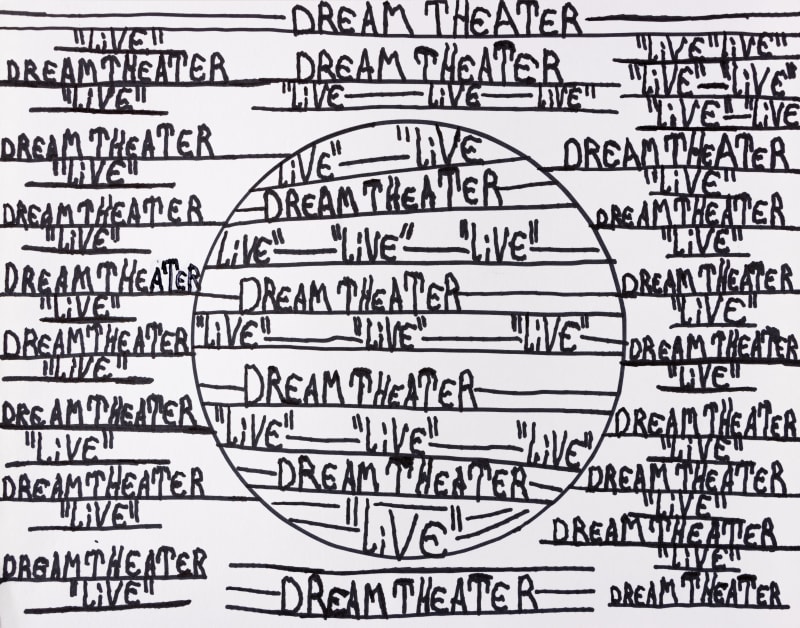 "LiVE"
DREAM THEATER
"LiVE"
DREAM THEATER
"LiVE"
DREAM THEATER
"LiVE"
DREAM THEATER
"LiVE"
DREAM THEATER
"LiVE"
DREAM THEATER
"LiVE"
DREAM THEATER
"LiVE"
DREAM THEATER
"LiVE"
DREAM THEATER
DREAM THEATER
"LiVE — LiVE — LiVE"
LiVE" — "LiVE
DREAM THEATER
LiVE" — "LiVE" — "LiVE" —
DREAM THEATER
"LiVE" — "LiVE" — "LiVE"
DREAM THEATER
"LiVE" — "LiVE" — "LiVE"
DREAM THEATER
"LiVE"
DREAM THEATER
"LiVE" LiVE"
"LiVE — LiVE"
"LiVE" — "LiVE
DREAM THEATER
"LiVE"
DREAM THEATER
"LiVE"
DREAM THEATER
"LiVE"
DREAM THEATER
"LiVE"
DREAM THEATER
"LiVE"
DREAM THEATER
"LiVE"
DREAM THEATER
"LiVE"
DREAM THEATER